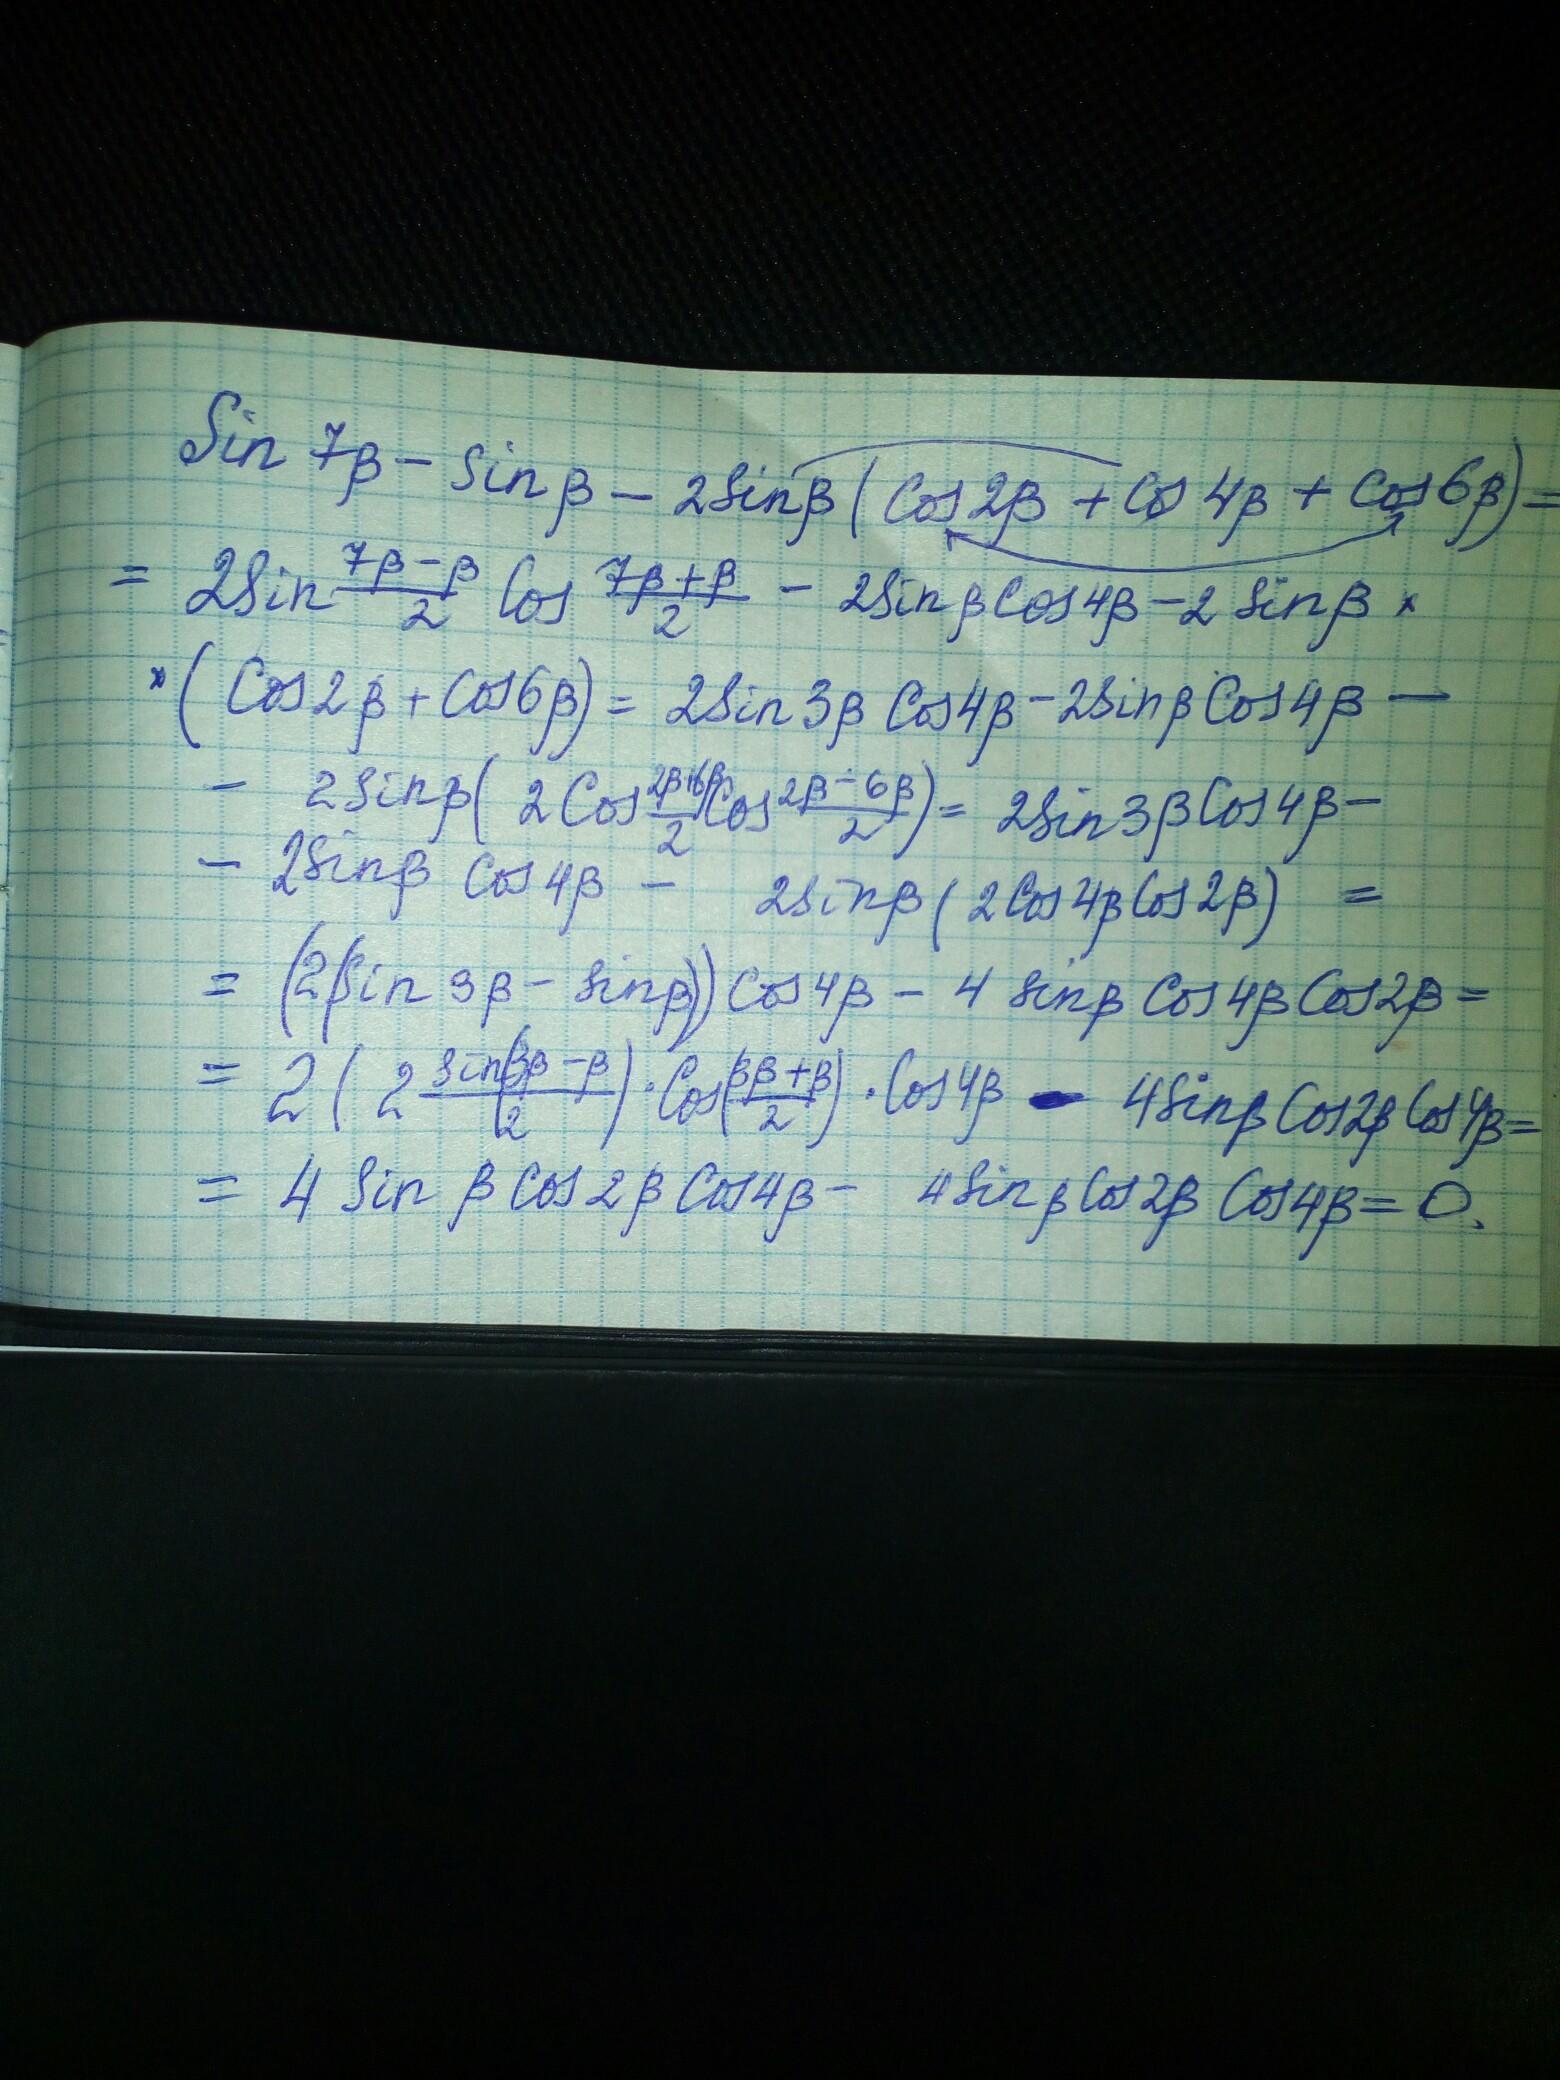 Sin 7β - sin β - 2sinβ (Cos2β + Cos 4β + Cos6β) =
= 2Sin (7β - β)/2 Cos (7β + β)/2 - 2sinβ Cos4β - 2 sinβ ×
× (Cos2β + Cos6β) = 2Sin3β Cos4β - 2sinβ Cos4β -
- 2sinβ( 2Cos (2β+6β)/2 Cos (2β - 6β)/2 ) = 2Sin3β Cos4β -
- 2Sinβ Cos4β - 2sinβ (2Cos4βCos2β) =
= (2(Sin 3β - Sinβ)) Cos4β - 4 sinβ Cos4β Cos2β =
= 2 ( 2 sin(3β - β)/(2) ) · Cos((3β + β)/2) · Cos4β - 4Sinβ Cos2β Cos4β =
= 4 Sin β Cos2β Cos4β - 4Sinβ Cos2β Cos4β = 0.